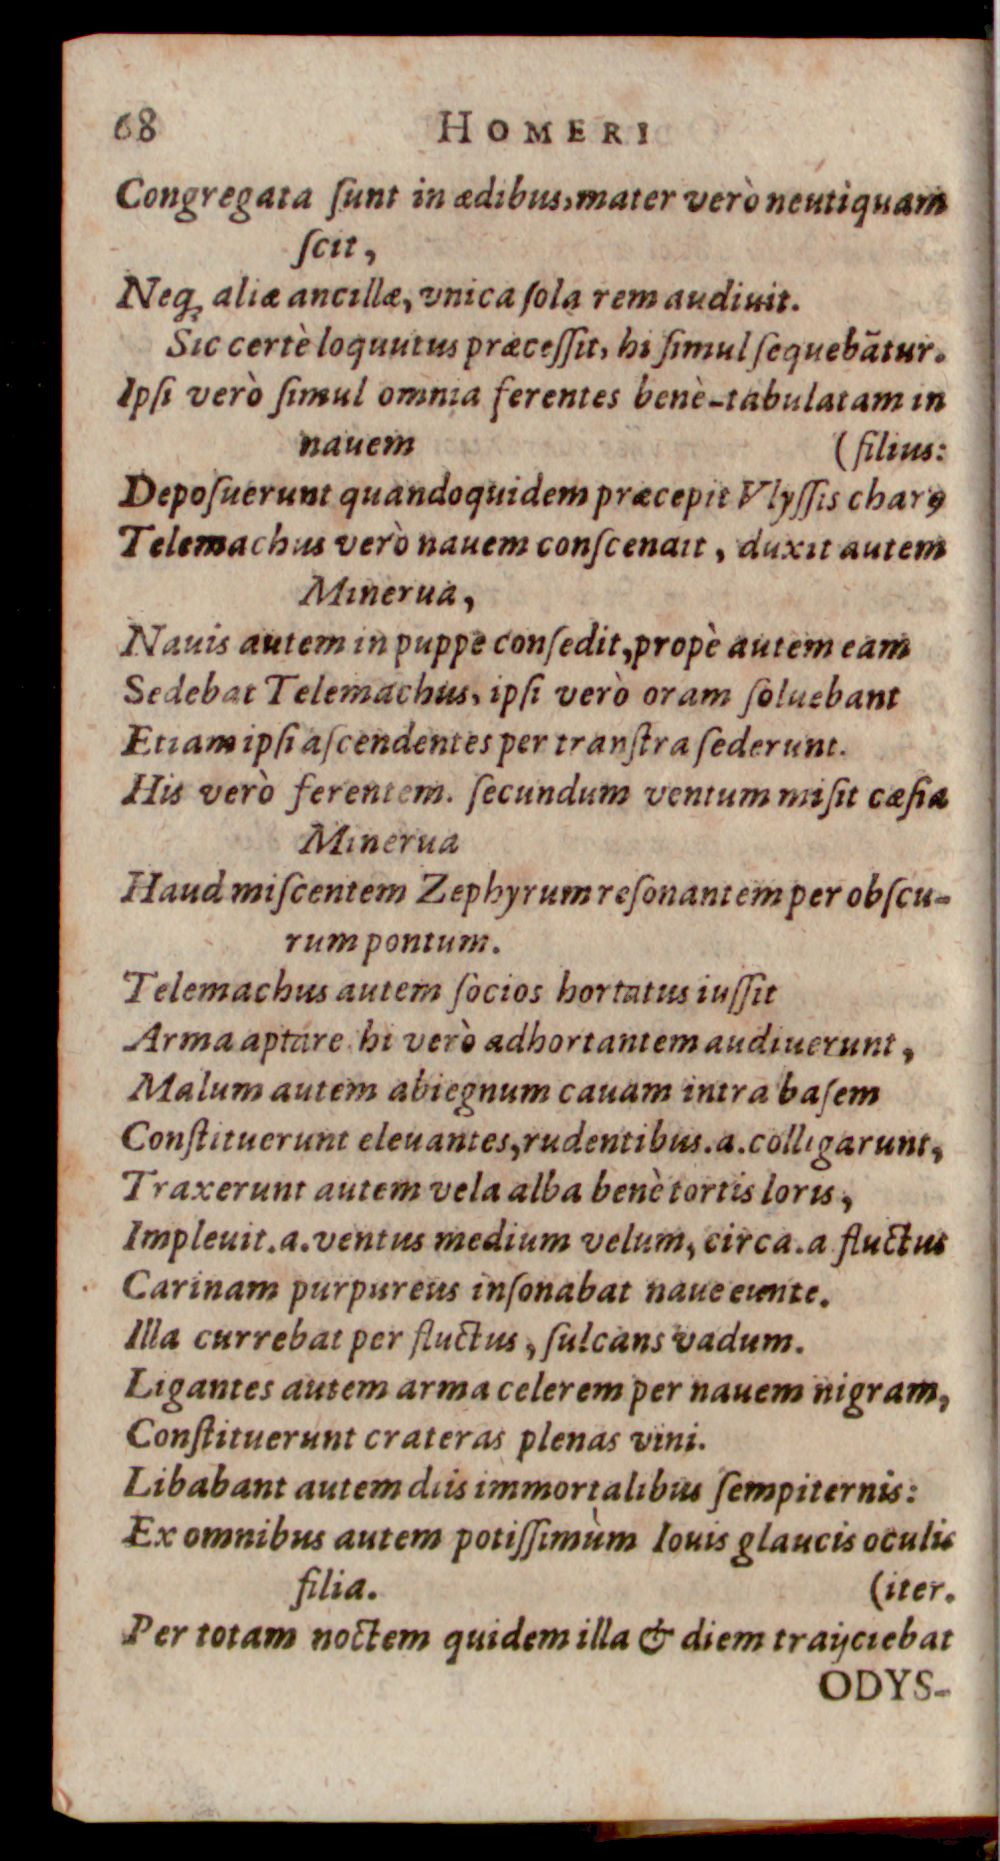 68 HOMERI
Congregata ſunt in ædibus, mater verò neutiquam
ſcit,
Neq; aliæ ancillæ, vnica ſola rem audiuit.
Sic certè loquutus præceſſit, hi ſimul ſequebãtur.
Ipſi verò ſimul omnia ferentes benè-tabulatam in
nauem (filius:
Depoſuerunt quandoquidem præcepit Vlyſſis charꝰ
Telemachus verò nauem conſcendit, duxit autem
Minerua,
Nauis autem in puppe conſedit, propè autem eam
Sedebat Telemachus, ipſi verò oram ſoluebant
Etiam ipſi aſcendentes per tranſtra ſederunt.
His verò ferentem. ſecundum ventum miſit cæſia
Minerua
Haud miſcentem Zephyrum reſonantem per obſcu-
rum pontum.
Telemachus autem ſocios hortatus iuſſit
Arma aptare hi verò adhortantem audiuerunt,
Malum autem abiegnum cauam intra baſem
Conſtituerunt eleuantes, rudentibus.a.colligarunt,
Traxerunt autem vela alba benè tortis loris,
Impleuit.a.ventus medium velum, circa.a fluctus
Carinam purpureus inſonabat naue eunte.
Illa currebat per fluctus, ſulcans vadum.
Ligantes autem arma celerem per nauem nigram,
Conſtituerunt crateras plenas vini.
Libabant autem diis immortalibus ſempiternis:
Ex omnibus autem potiſſimùm Iouis glaucis oculis
filia. (iter.
Per totam noctem quidem illa & diem traijciebat
ODYS-